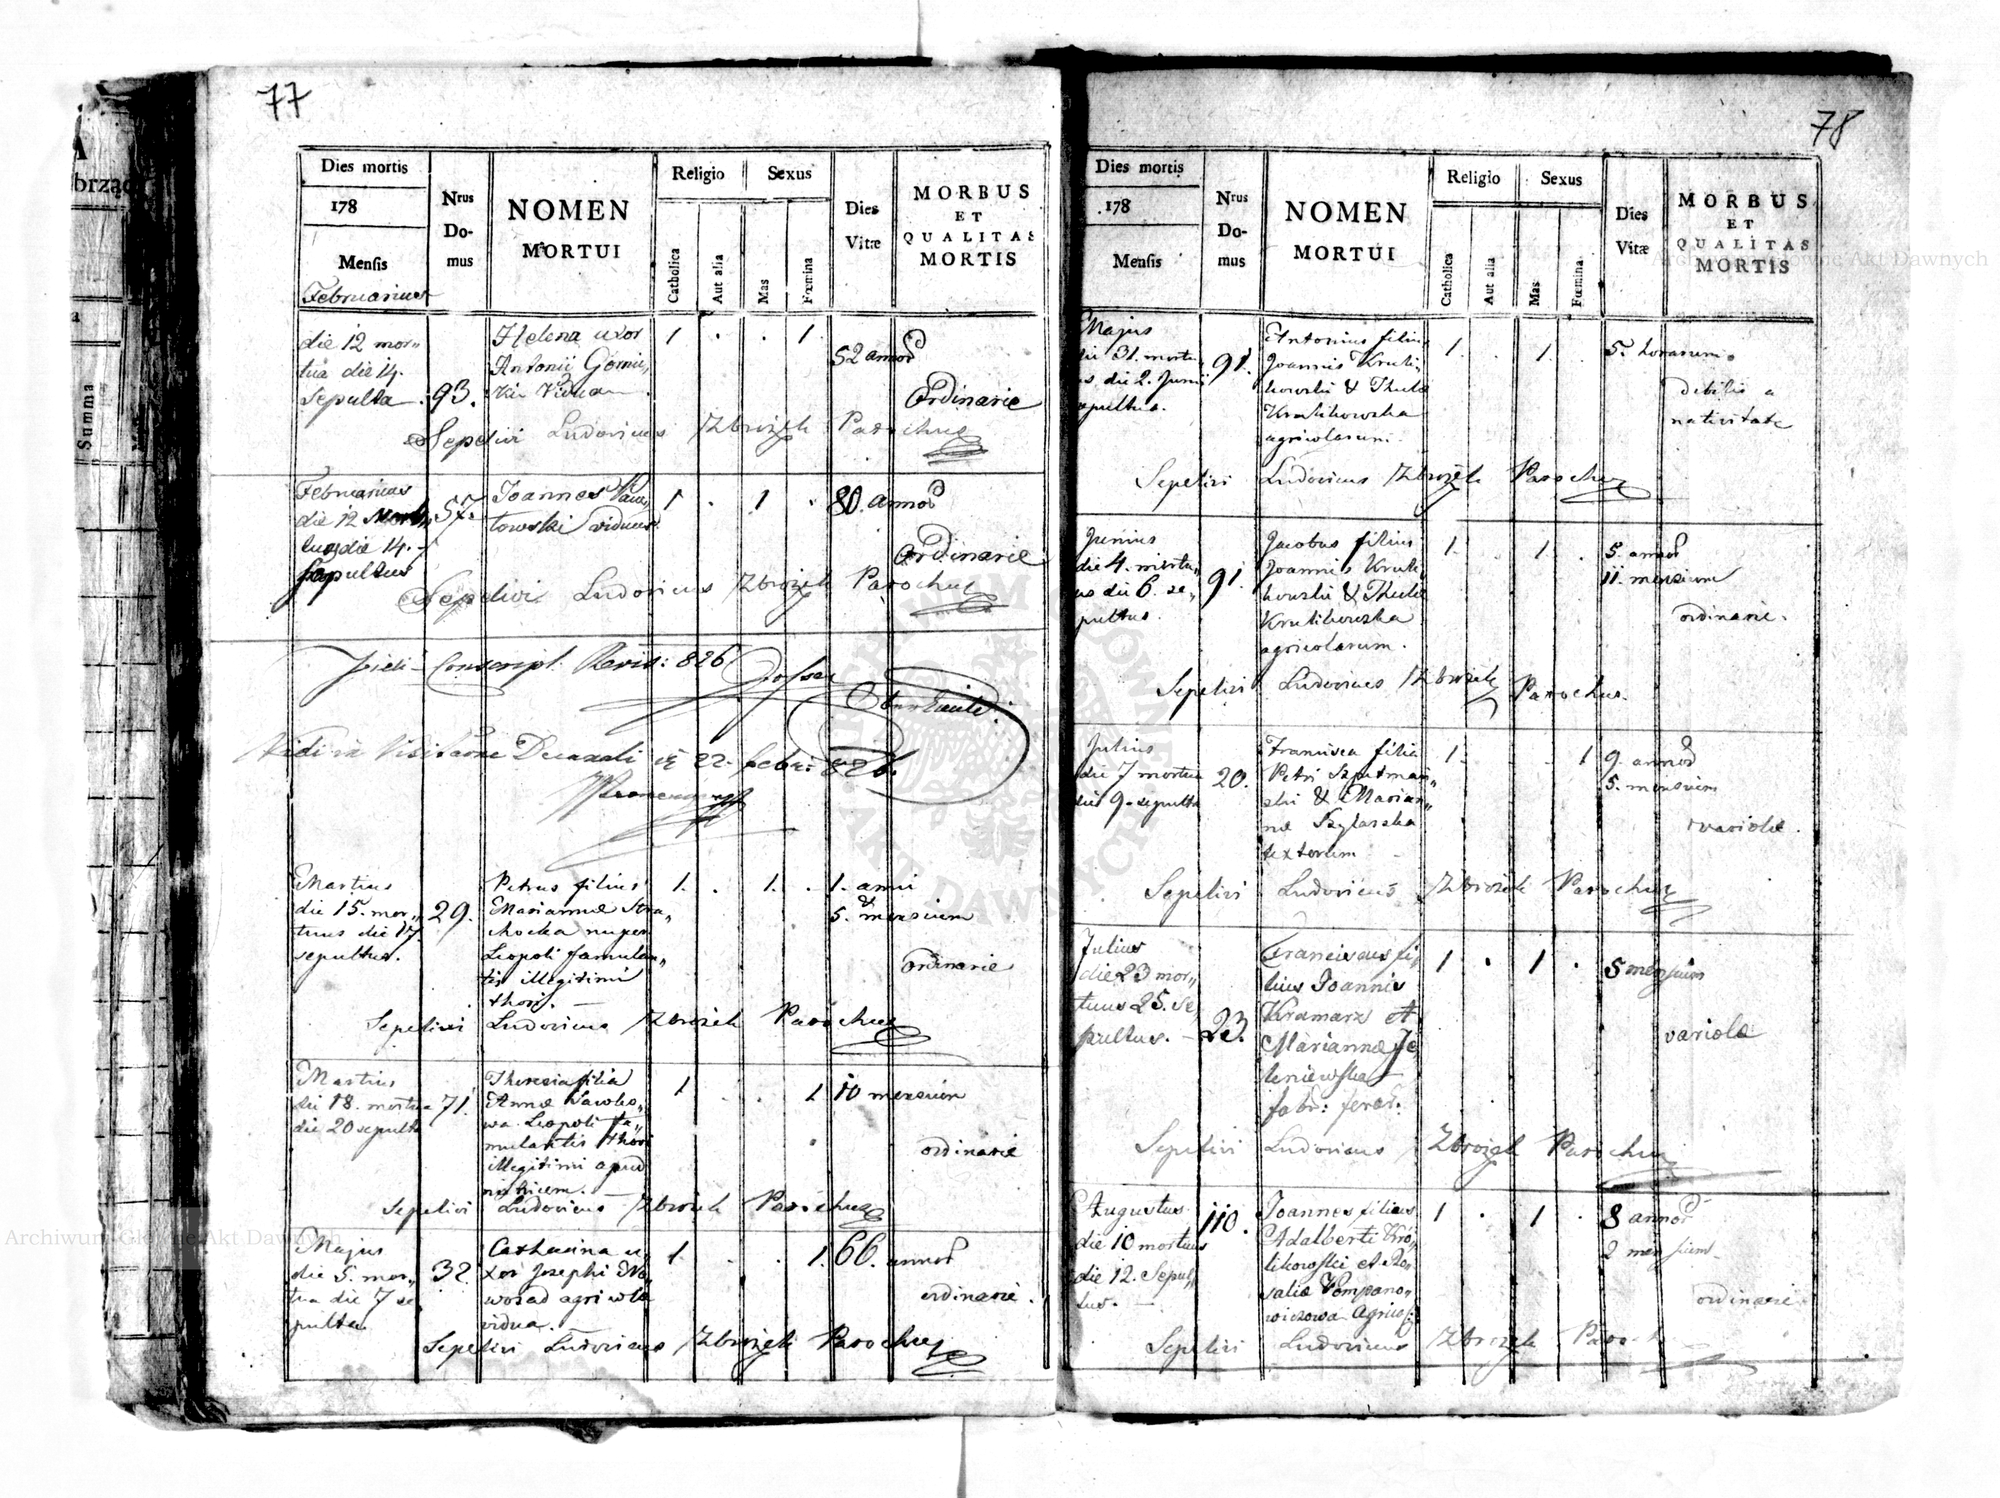 77
Dies mortis
178
Mensis
Februarius
Nrus
Do-
mus
NOMEN
MORTUI
Religio
Sexus
Catholica
Aut alia
Mas
Fœmina
Dies
Vitæ
MORBUS
ET
QUALITAS
MORTIS
die 12 mor„
tua die 14.
Sepulta.
93.
Helena uxor
Antonii
Vidua
1 . . 1
52 annor
Ordinarie
Sepelivi Ludovicus Zbrożek Parochus
Februarius
die 12 Mortu„
die 14.
Sepultus
57.
Joannes
towski viduus.
1 . 1 .
80. annor
Ordinarie
Sepelivi Ludovicus Zbrożek Parochus
Conscript. Revis: 826
Vidi in Visitatione Decanali 22. febr: 826.
Martius
die 15. mor„
tuus die 17.
sepultus.
29.
Petrus filius
Mariannæ
nuper
Leopoli famulan„
tis illegitimi
thori.
1. . 1. .
1. anni
&
5. mensium
ordinarie
Sepelivi Ludovicus Zbrożek Parochus
Martius
die 18. mortua
die 20 sepulta
71.
Theresia filia
Annæ
Leopoli fa„
mulantis thori
illegitimi apud
nutricem.
1 . . 1
10 mensium
ordinarie
Sepelivi Ludovicus Zbrożek Parochus
Majus
die 5. mor„
tua die 7 se
pulta.
32.
Catharina u„
xor Josephi
agricolæ
vidua.
1. . . 1.
66. annor
ordinarie.
Sepelivi Ludovicus Zbrożek Parochus
78
Dies mortis
178
Mensis
Nrus
Do-
mus
NOMEN
MORTUI
Religio
Sexus
Catholica
Aut alia
Mas
Fœmina
Dies
Vitæ
MORBUS
ET
QUALITAS
MORTIS
Majus
die 31. mortu„
us die 2. Junii
sepultus.
91.
Antonius filius
Joannis Kruli„
kowski & Theclæ
Krulikowska
agricolarum.
1. . 1. .
5. horarum.
debilis a
nativitate
Sepelivi Ludovicus Zbrożek Parochus
Junius
die 4. mortu„
us die 6. se„
pultus.
91.
Jacobus filius
Joannis Kruli
kowski & Theclæ
Krulikowska
agricolarum.
1. . 1. .
5. annor
11. mensium
ordinarie.
Sepelivi Ludovicus Zbrożek Parochus.
Julius
die 7 mortua
die 9. sepulta
20.
Francisca filia
Petri
ski & Marian„
næ
textorum
1. . . 1
9. annor
5. mensium
variolæ.
Sepelivi Ludovicus Zbrożek Parochus
Julius
die 23 mor„
tuus 25. se
pultus.
23.
Franciscus fi„
lius Joannis
Kramarz et
Mariannæ Je
leniewska
fabr: ferar.
1 . 1 .
5 mensium
variolæ
Sepelivi Ludovicus Zbrożek Parochus
Augustus
die 10 mortuus
die 12. Sepul„
tus.
110.
Joannes filius
Adalberti Kró„
likowski et Ro„
saliæ Pompano„
wiczowa Agricol:
1 . 1 .
8 annor
2 mensium
ordinarie.
Sepelivi Ludovicus Zbrożek
Summa
Archiwum Główne Akt Dawnych
Archiwum Główne Akt Dawnych